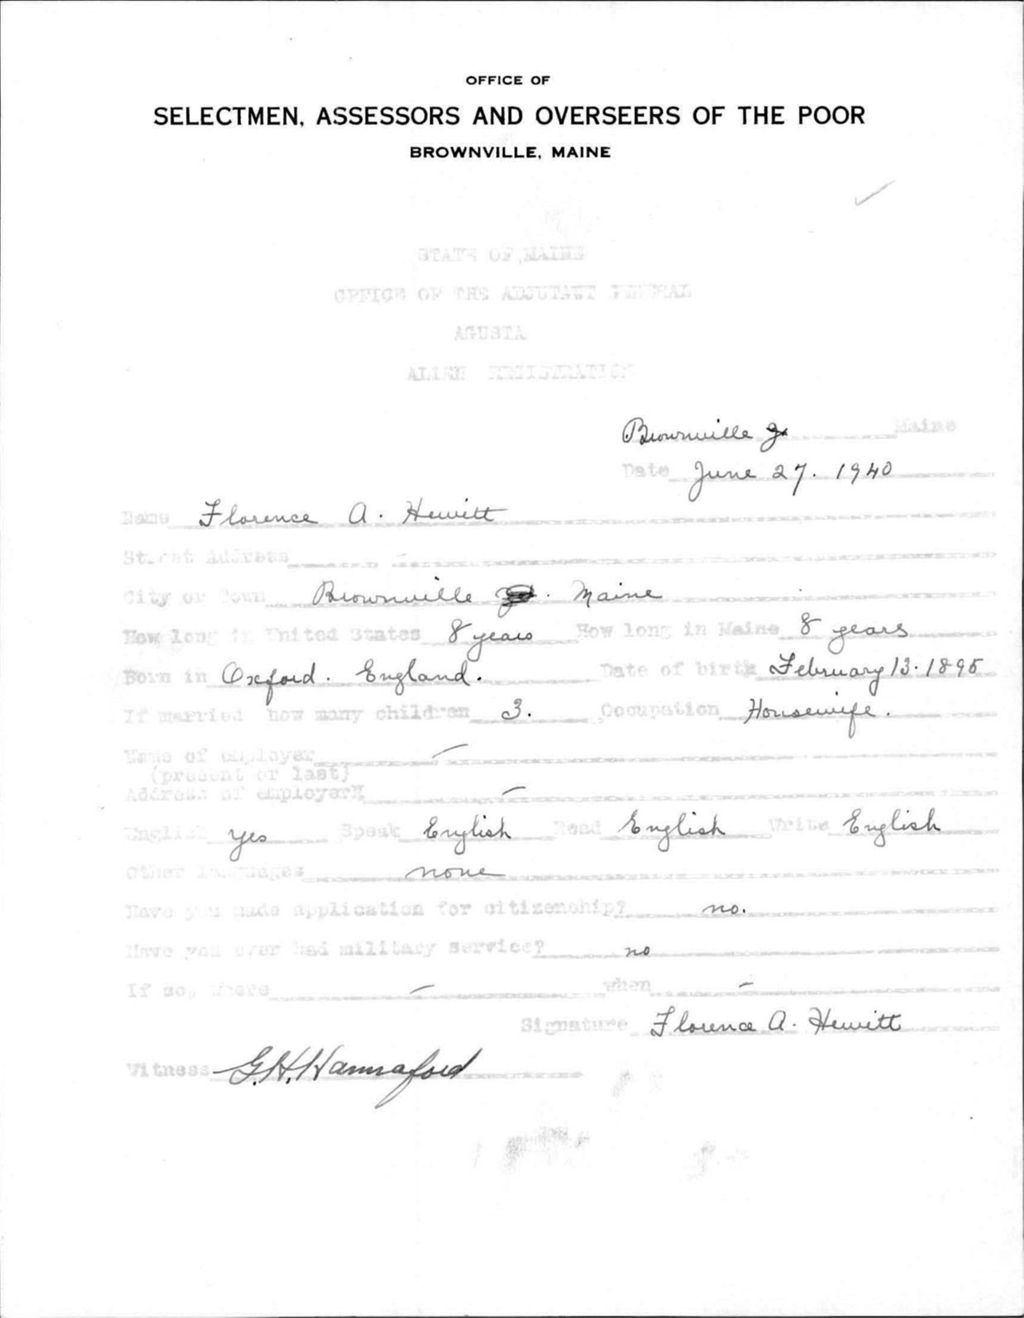 OFFICE OF
SELECTMEN, ASSESSORS AND OVERSEERS OF THE POOR
BROWNVILLE, MAINE
STATE OF MAINE
OFFICE OF THE ADJUTANT GENERAL
AGUSTA
ALIEN REGISTRATION
Brownville Jr Maine
Date June 27. 1940
Name Florence A. Hewitt
Street Address -
City or Town Brownville Jct. Maine
How long in United States 8 years How long in Maine 8 years
Born in Oxford. England. Date of birth February 13. 1895
If married how many children 3. Occupation Housewife.
Name of employer -
(present or last)
Address of employer -
English yes Speak English Read English Write English
Other languages none
Have you made application for citizenship? no.
Have you ever had military service? no
If so, where - when -
Signature Florence A. Hewitt
Witness G.H. Hannaford